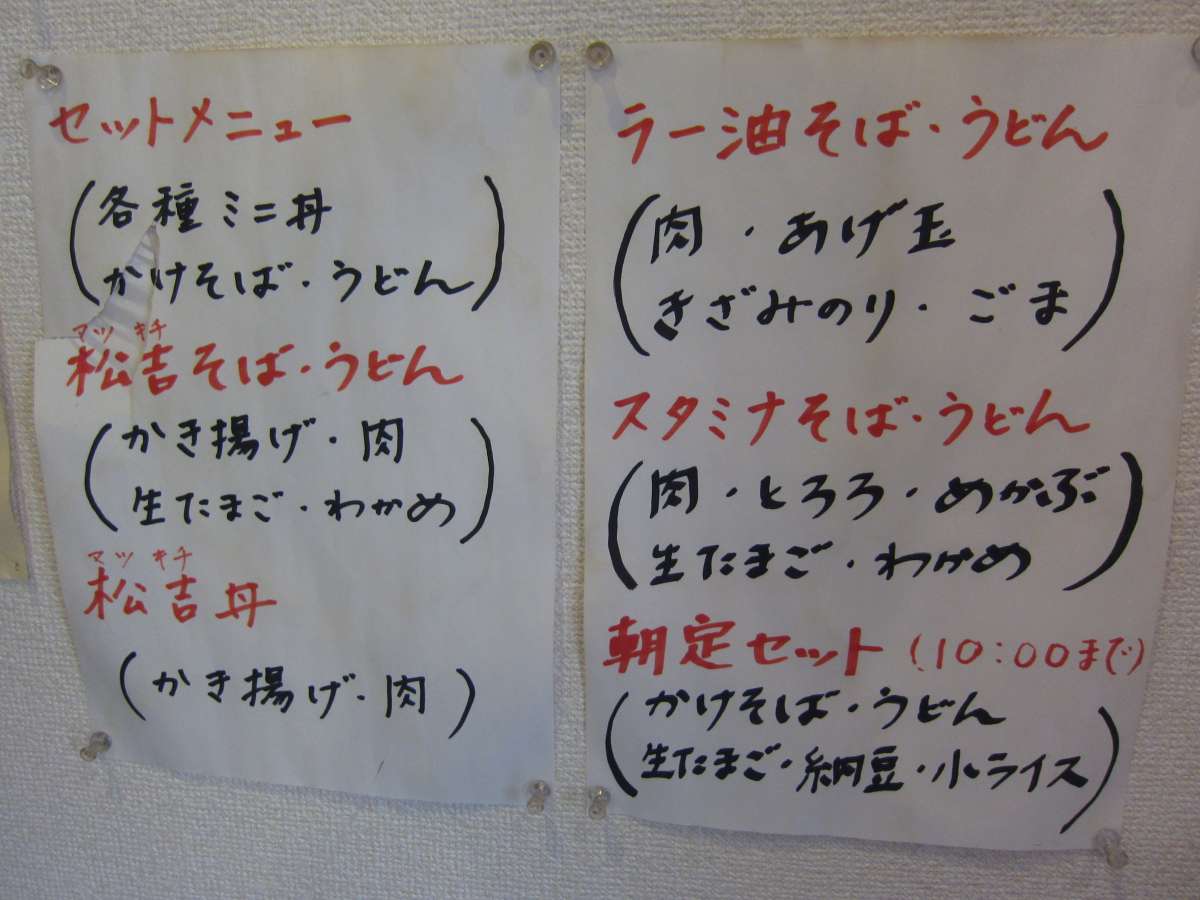 セットメニュー
(各種ミニ丼
かけそば・うどん)
マツキチ
松吉そば・うどん
(かき揚げ・肉
生たまご・わかめ)
マツキチ
松吉丼
(かき揚げ・肉)
ラー油そば・うどん
(肉・あげ玉
きざみのり・ごま)
スタミナそば・うどん
(肉・とろろ・めかぶ
生たまご・わかめ)
朝定セット(10:00まで)
(かけそば・うどん
生たまご・納豆・小ライス)